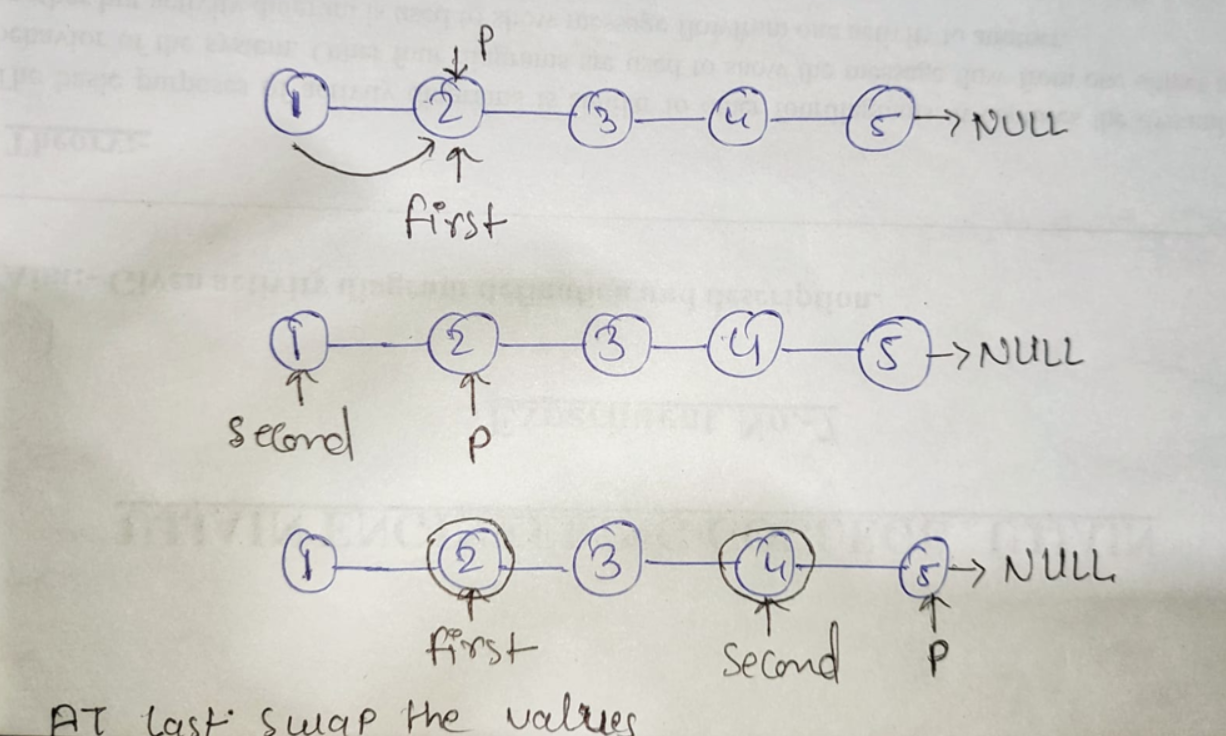 P
1 2 3 4 5 → NULL
first
1 2 3 4 5 → NULL
second P
1 2 3 4 5 → NULL
first second P
AT last swap the values